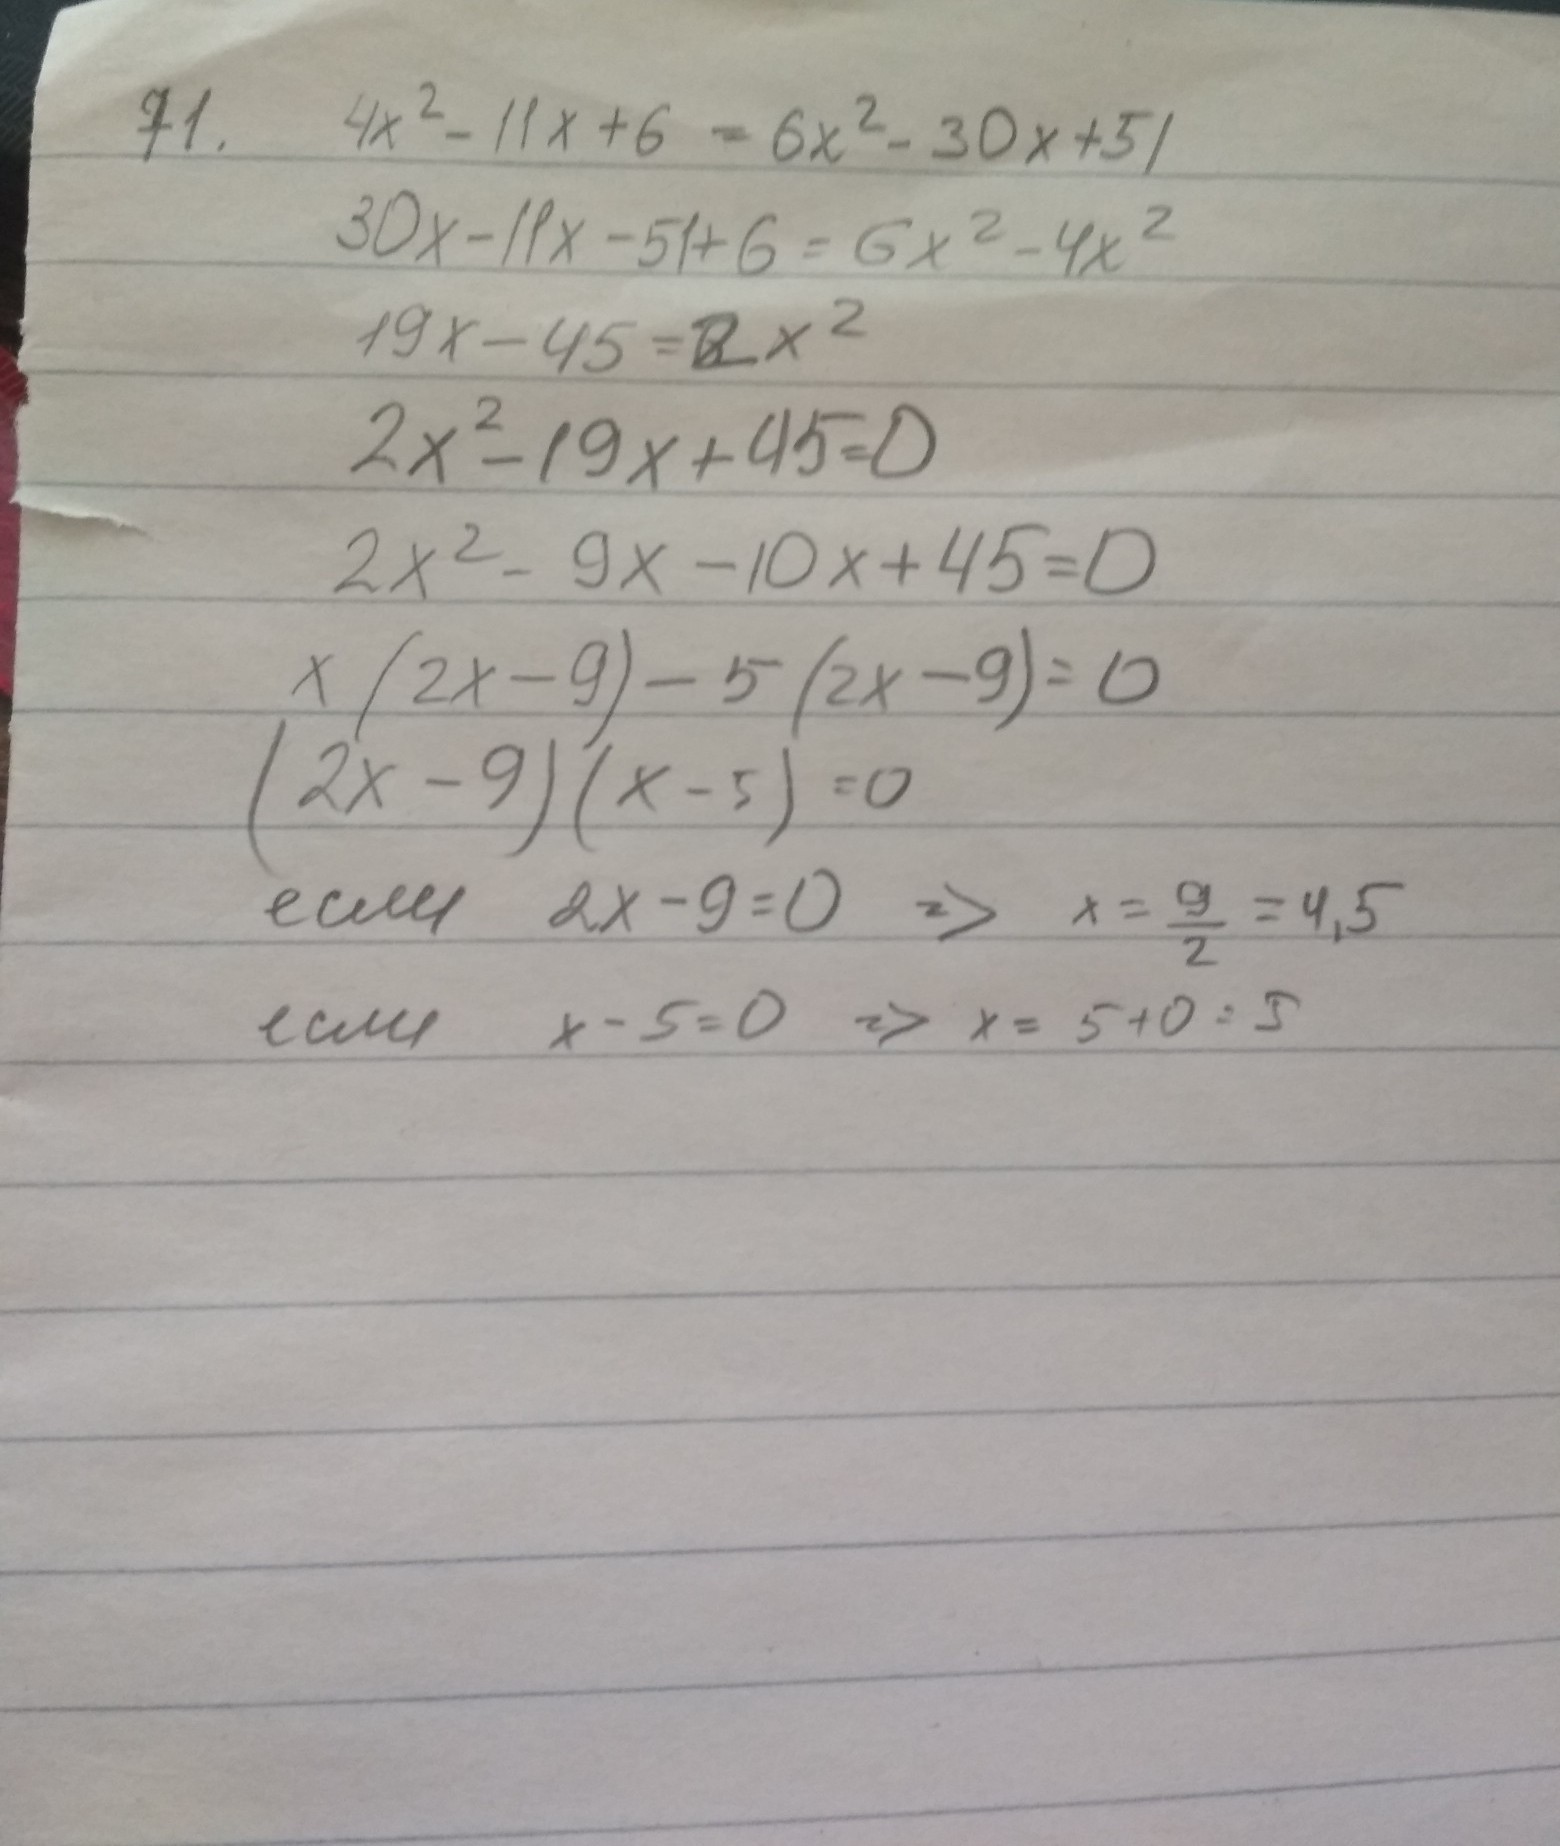 71. 4x² - 11x + 6 = 6x² - 30x + 51
30x - 11x - 51 + 6 = 6x² - 4x²
19x - 45 = 2x²
2x² - 19x + 45 = 0
2x² - 9x - 10x + 45 = 0
x(2x - 9) - 5(2x - 9) = 0
(2x - 9)(x - 5) = 0
если 2x - 9 = 0 => x = 9/2 = 4,5
если x - 5 = 0 => x = 5 + 0 = 5